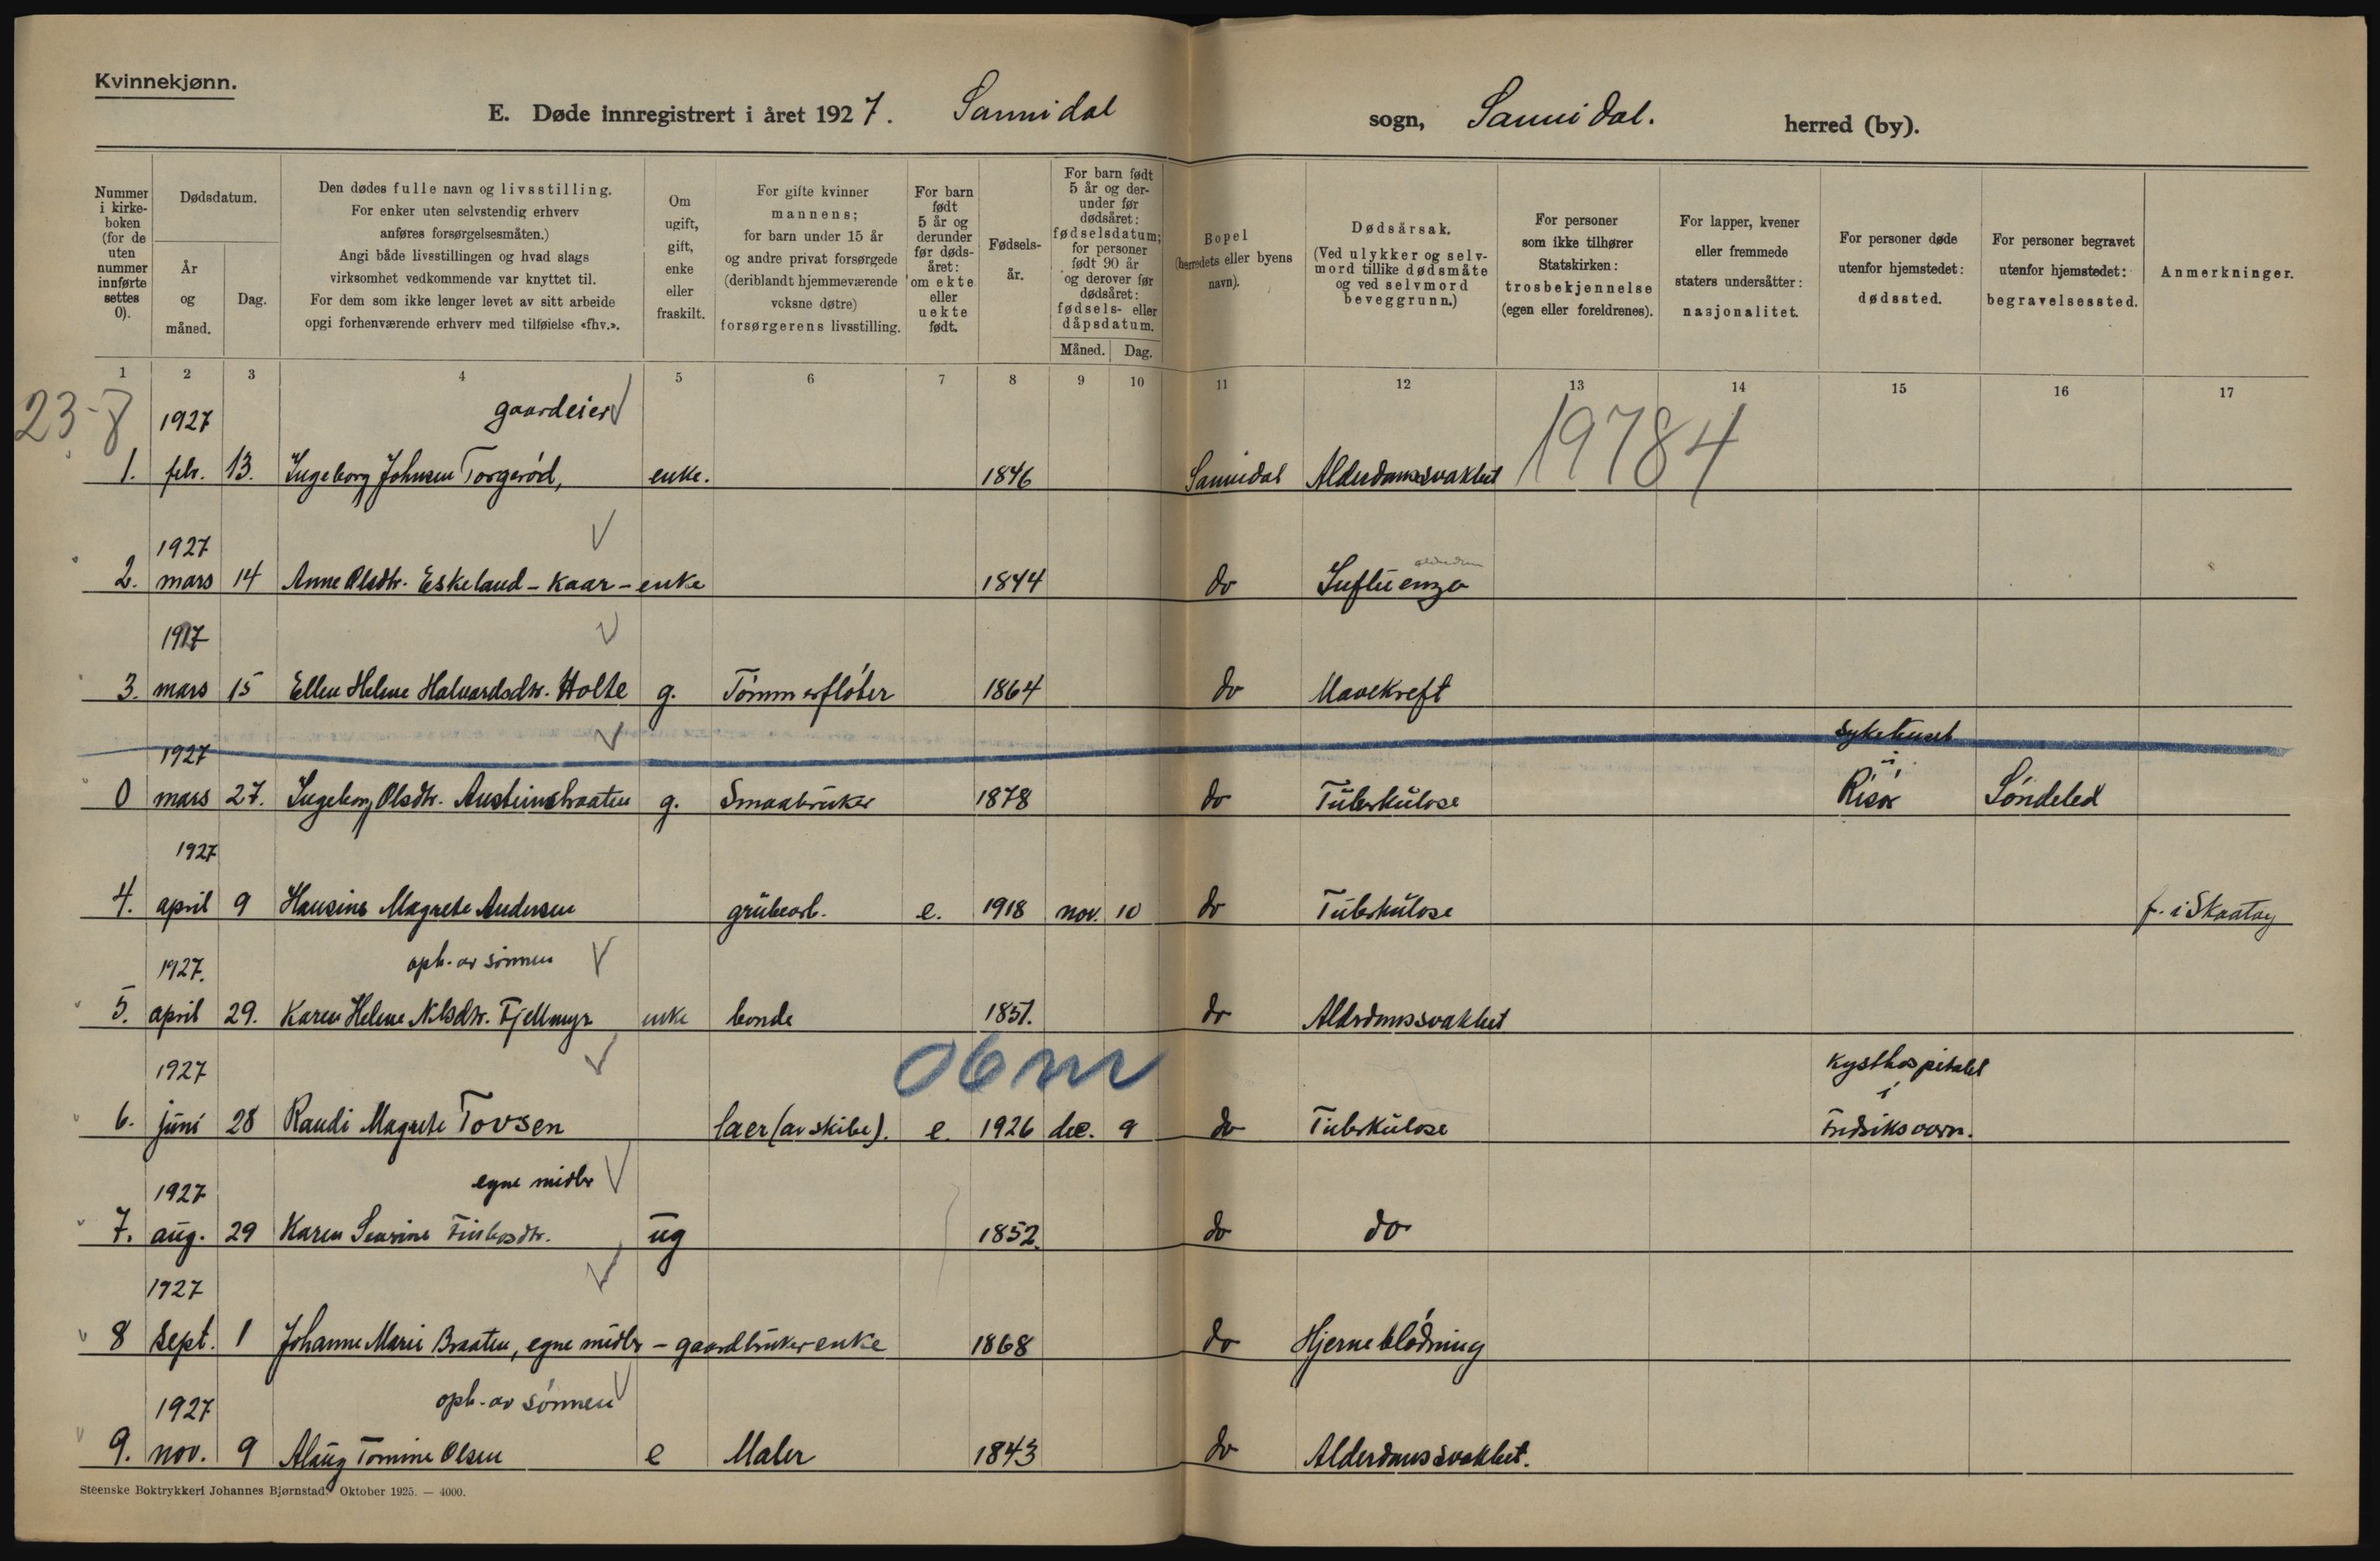 Kvinnekjønn.
E. Døde innregistrert i året 1927. Sannidal sogn, Sannidal. herred (by).
Nummer i kirkeboken (for de uten nummer innførte settes 0).
Dødsdatum.
År og måned.
Dag.
Den dødes fulle navn og livsstilling.
For enker uten selvstendig erhverv
anføres forsørgelsesmåten.)
Angi både livsstillingen og hvad slags
virksomhet vedkommende var knyttet til.
For dem som ikke lenger levet av sitt arbeide
opgi forhenværende erhverv med tilføielse «fhv.».
Om ugift, gift, enke eller fraskilt.
For gifte kvinner
mannens;
for barn under 15 år
og andre privat forsørgede
(deriblandt hjemmeværende
voksne døtre)
forsørgerens livsstilling.
For barn født 5 år og derunder før dødsåret: om ekte eller uekte født.
Fødselsår.
For barn født 5 år og derunder før dødsåret: fødselsdatum; for personer født 90 år og derover før dødsåret: fødsels- eller dåpsdatum.
Måned. Dag.
Bopel (herredets eller byens navn).
Dødsårsak.
(Ved ulykker og selvmord tillike dødsmåte og ved selvmord beveggrunn.)
For personer som ikke tilhører Statskirken: trosbekjennelse (egen eller foreldrenes).
For lapper, kvener eller fremmede staters undersåtter: nasjonalitet.
For personer døde utenfor hjemstedet: dødssted.
For personer begravet utenfor hjemstedet: begravelsessted.
Anmerkninger.
1 2 3 4 5 6 7 8 9 10 11 12 13 14 15 16 17
23-8 1927 gaardeier 19784
1. febr. 13. Ingeborg Johnsen Torgerød, enke. 1846 Sannidal Alderdomssvakhet
1927
2. mars 14 Anne Olsdtr. Eskeland - Kaar - enke 1844 do Influenza
1927
3. mars 15 Ellen Helene Halvardsdtr. Holte g. Tømmerfløter 1864 do Mavekreft
1927 Sykehuset i
0 mars 27. Ingeborg Olsdtr. g. Smaabruker 1878 do Tuberkulose Risør Søndeled
1927
4. april 9 Hansine Magrete Andersen grubearb. e. 1918 nov. 10 do Tuberkulose f. i Skaatøy
1927. oph. av sønnen
5. april 29. Karen Helene Nilsdtr. Fjellmyr enke bonde 1851. do Alderdomssvakhet
1927 Kysthospitalet i
6. juni 28 Randi Magrete Tovsen laer (av skibe). e. 1926 dec. 9 do Tuberkulose Fredriksvern.
1927 egne midler
7. aug. 29 Karen Severine ug 1852. do do
1927
8 sept. 1 Johanne Marie Braaten, egne midler - gaardbruker enke 1868 do Hjerneblødning
1927 oph. av sønnen
9. nov. 9 Alaug Tomine Olsen e Maler 1843 do Alderdomssvakhet.
Steenske Boktrykkeri Johannes Bjørnstad. Oktober 1925. — 4000.